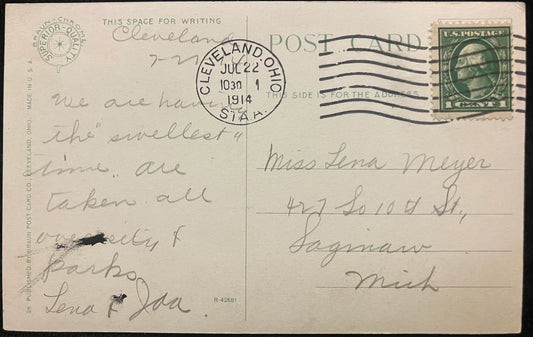 THIS SPACE FOR WRITING
BRAUN-CHROME
SUPERIOR-QUALITY
MADE IN U.S.A.
28 PUBLISHED BY BRAUN POST CARD CO. CLEVELAND, OHIO.
Cleveland
We are having
the "swellest"
time. are
taken all
over city &
parks
Lena & Ida
R-42681
POST CARD
THIS SIDE IS FOR THE ADDRESS
CLEVELAND, OHIO
JUL 22
1030
1914
STA. A.
U.S. POSTAGE
1 CENT 1
Miss Lena Meyer
427 So 10th St,
Saginaw
Mich